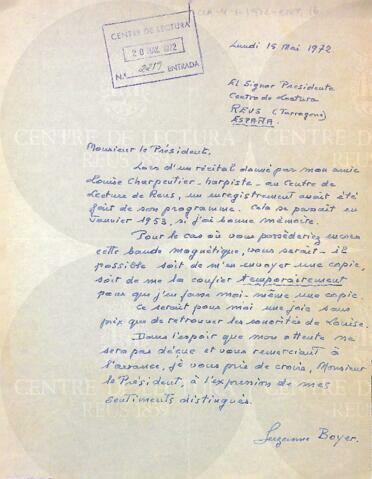 CENTRE DE LECTURA
20 MAI. 1972
N.º 2217 ENTRADA
Lundi 15 Mai 1972
El Signor Presidente
Centro de Lectura
REUS (Tarragona)
ESPAÑA.
Monsieur le Président.
Lors d'un récital donné par mon amie
Louise Charpentier - harpiste - au Centre de
Lecture de Reus, un enregistrement avait été
fait de son programme. Cela se passait en
Janvier 1953, si j'ai bonne mémoire.
Pour le cas où vous possèderiez encore
cette bande magnétique, vous serait-il
possible soit de m'en envoyer une copie,
soit de me la confier temporairement
pour que j'en fasse moi-même une copie.
Ce serait pour moi une joie sans
prix que de retrouver les sonorités de Louise.
Dans l'espoir que mon attente ne
sera pas déçue et vous remerciant à
l'avance, je vous prie de croire, Monsieur
le Président, à l'expression de mes
sentiments distingués.
Suzanne Boyer.
CENTRE DE LECTURA
REUS 1859